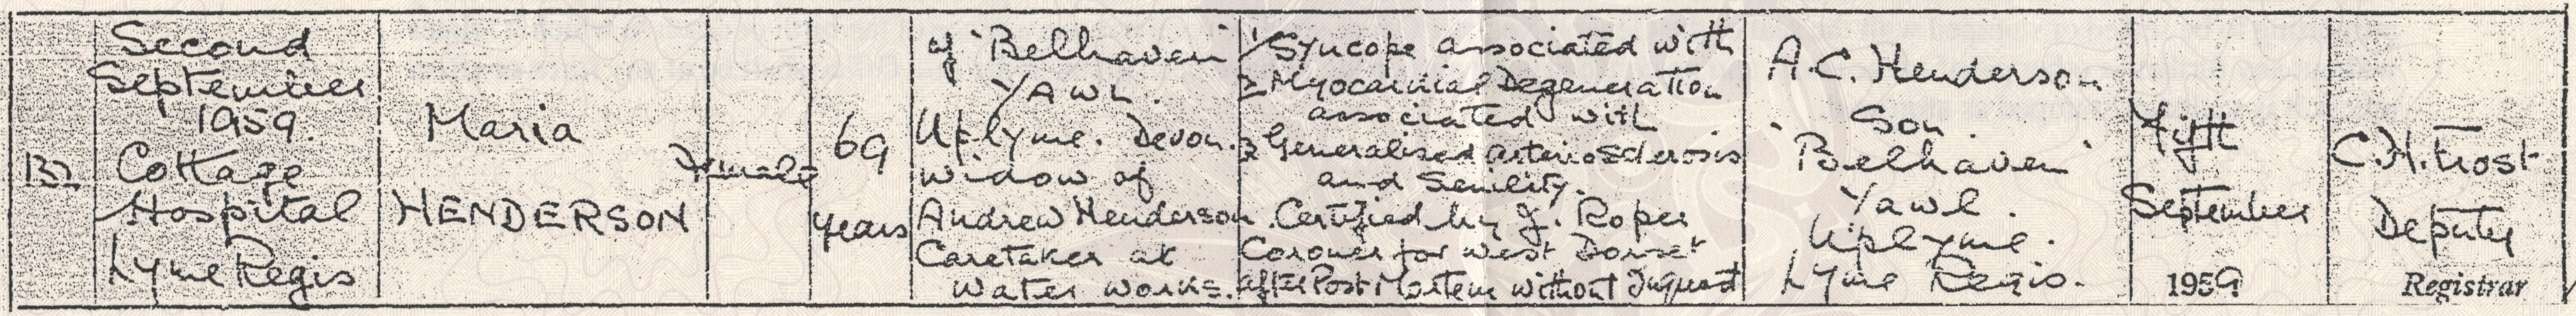 132
Second
September
1959.
Cottage
Hospital
Lyme Regis
Maria
HENDERSON
Female
69
years
of "Belhaven"
Yawl.
Uplyme. Devon.
Widow of
Andrew Henderson
Caretaker at
Water works.
1/ Syncope associated with
2 Myocardial Degeneration
associated with
3 Generalised arteriosclerosis
and Senility.
Certified by J. Roper
Coroner for West Dorset
after Post Mortem without Inquest
A.C. Henderson
Son.
"Belhaven"
Yawl.
Uplyme.
Lyme Regis.
Fifth
September
1959
C.H. Frost
Deputy
Registrar